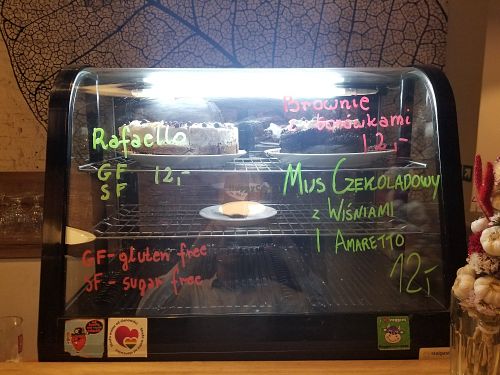 Rafaello
GF 12,-
SF
GF - gluten free
SF - sugar free
Brownie
z borówkami
12,-
Mus Czekoladowy
z Wiśniami
i Amaretto
12,-